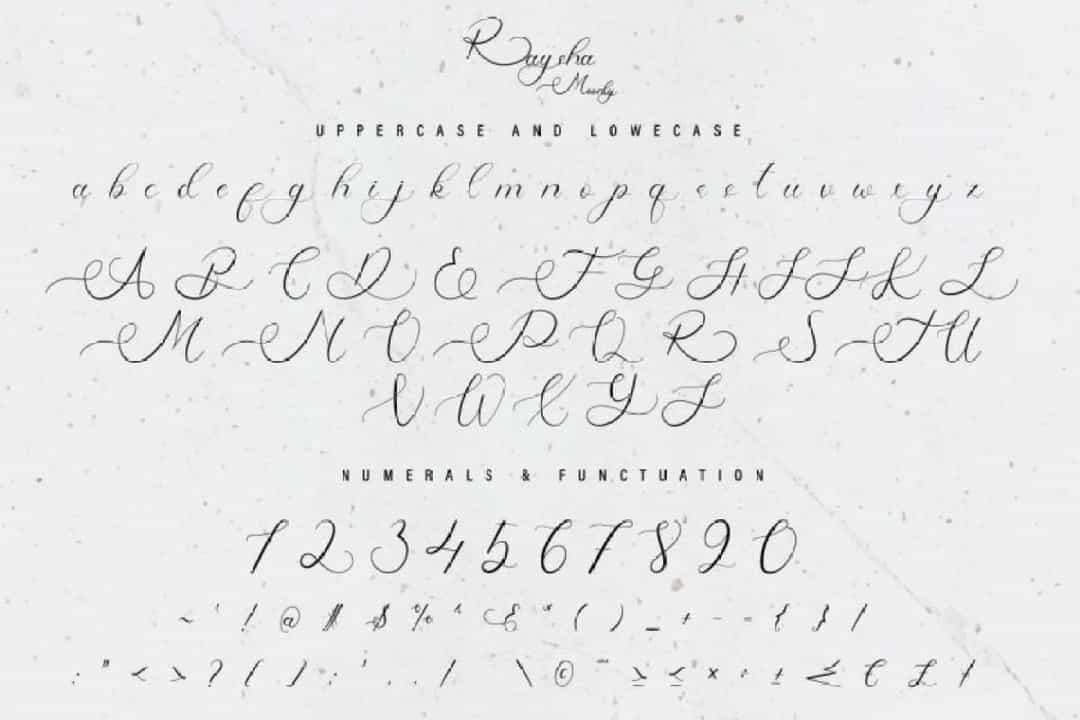 Raysha
Moody
UPPERCASE AND LOWECASE
a b c d e f g h i j k l m n o p q r s t u v w x y z
A B C D E F G H I J K L
M N O P Q R S T U
V W X Y Z
NUMERALS & FUNCTUATION
1 2 3 4 5 6 7 8 9 0
~ ' ! @ # $ % ^ & * ( ) _ + - = { } |
: " < > ? [ ] ; ' , . / \ © ™ ≥ ≤ × ÷ ±